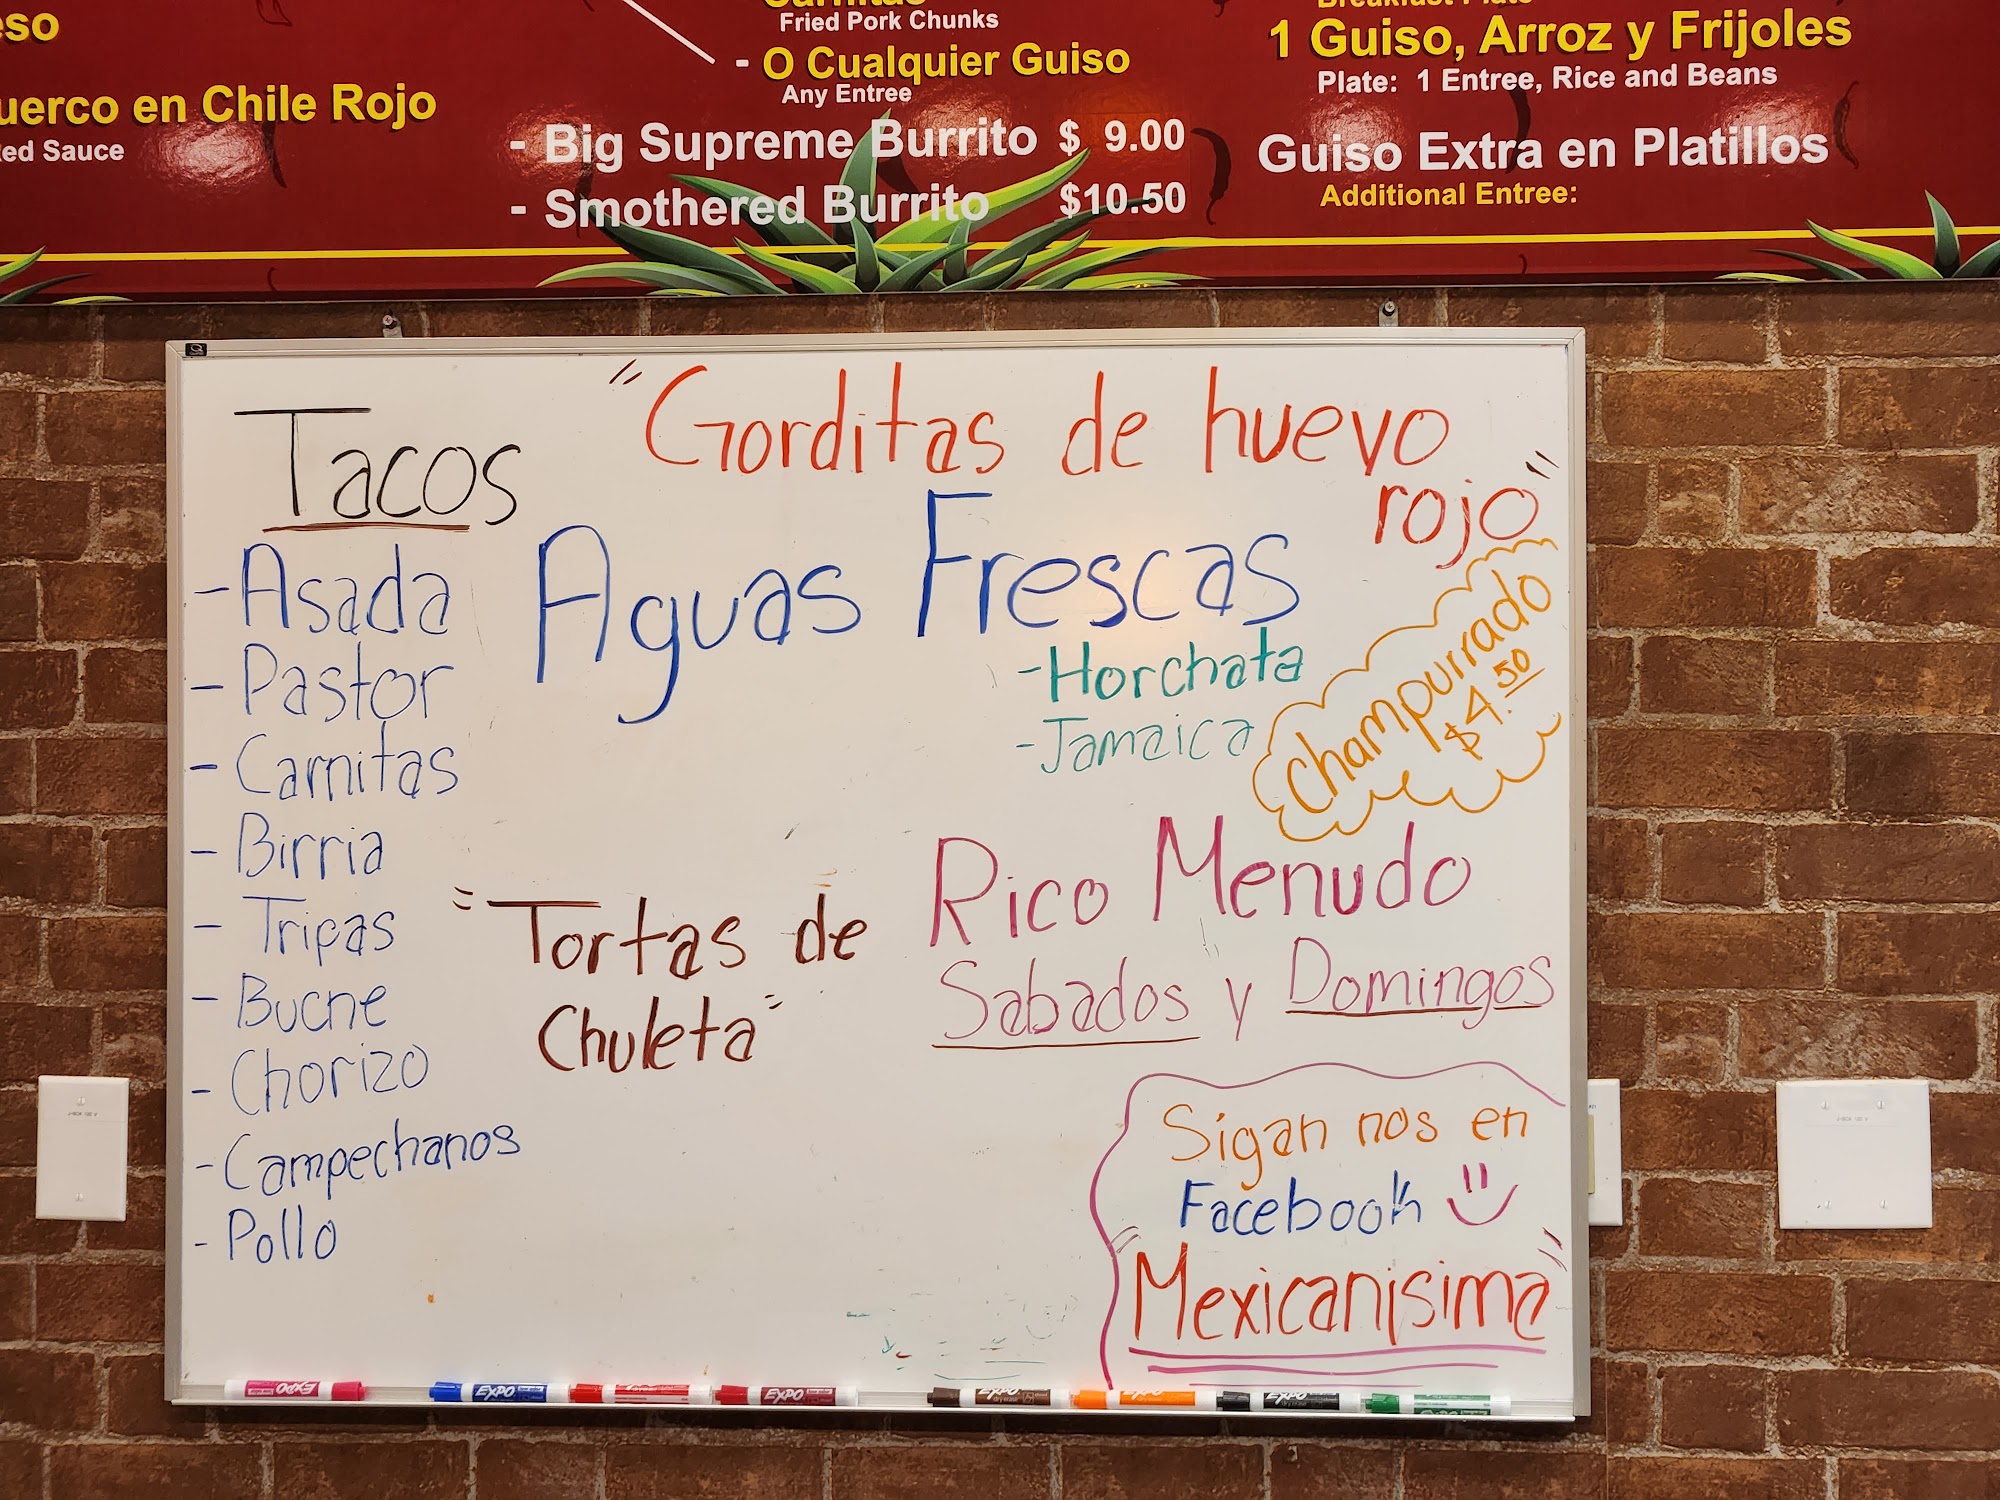 eso
uerco en Chile Rojo
ed Sauce
Carnitas
Fried Pork Chunks
- O Cualquier Guiso
Any Entree
- Big Supreme Burrito $ 9.00
- Smothered Burrito $10.50
Breakfast Plate
1 Guiso, Arroz y Frijoles
Plate: 1 Entree, Rice and Beans
Guiso Extra en Platillos
Additional Entree:
Tacos
- Asada
- Pastor
- Carnitas
- Birria
- Tripas
- Buche
- Chorizo
- Campechanos
- Pollo
"Gorditas de huevo
rojo"
Aguas Frescas
- Horchata
- Jamaica
Champurrado
$4.50
"Tortas de
Chuleta"
Rico Menudo
Sabados y Domingos
Sigan nos en
Facebook
"Mexicanisima"
EXPO
EXPO
EXPO
EXPO
EXPO
EXPO